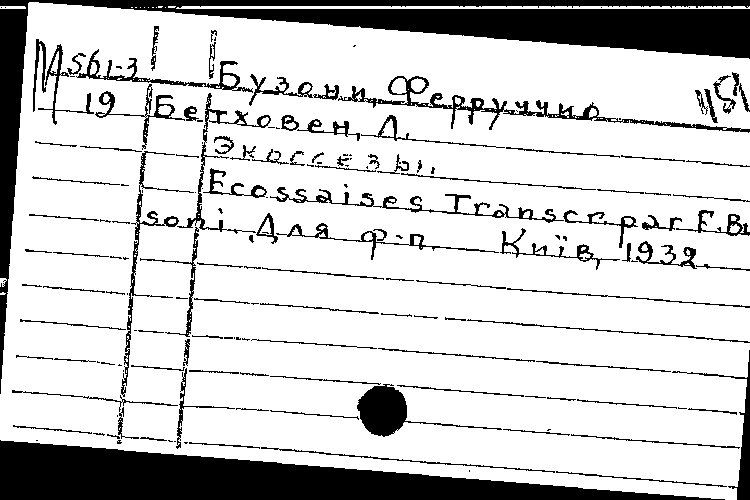 М 561-3 Бузони, Ферруччио
19 Бетховен, Л.
Экоссезы.
Ecossaises. Transcr. par F. Bu
soni. Для ф-п. Київ, 1932.